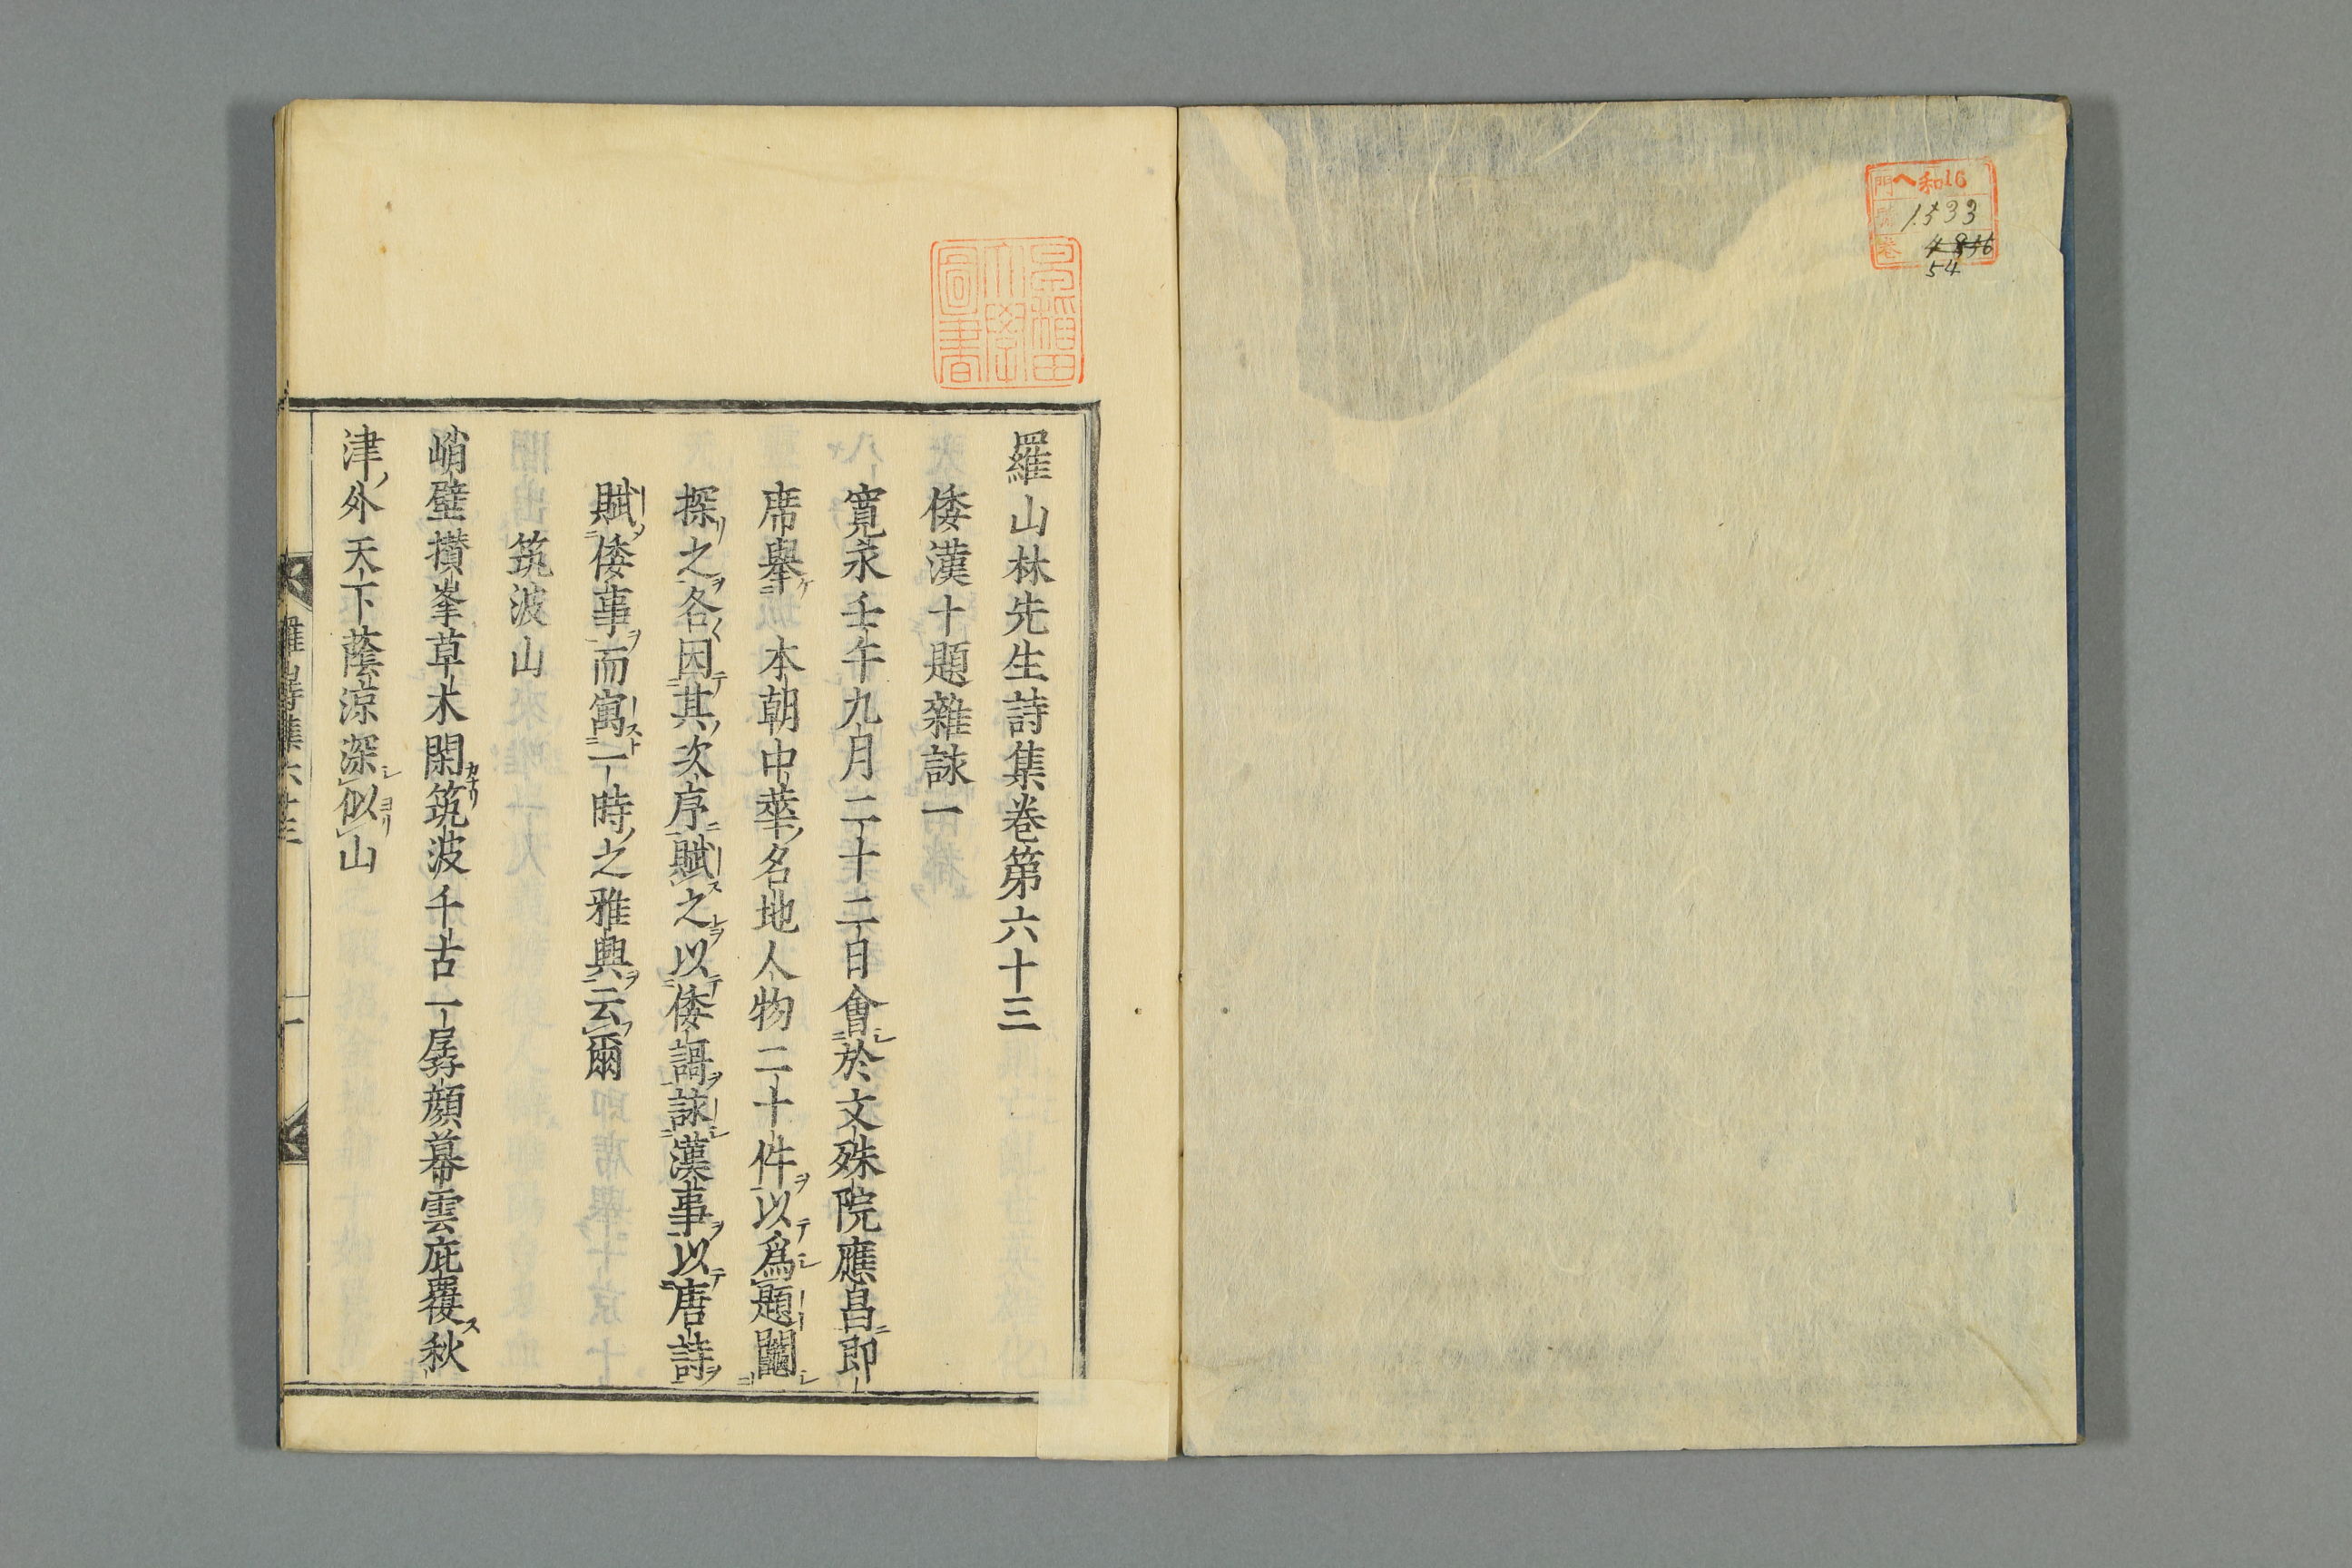 門 ヘ和16
號 1533
卷 4856
54
早稲田
大學
圖書
羅山林先生詩集卷第六十三
倭漢十題雜詠一
寛永壬午九月二十二日會於文殊院應昌即
席舉 本朝中華名地人物二十件以爲題鬮
探之各因其次序賦之以倭謌詠漢事以唐詩
賦倭事而寓一時之雅興云爾
筑波山
峭壁攅峯草木閑筑波千古一孱顔幕雲庇覆秋
津外天下蔭涼深似山
羅山詩集六十三 一